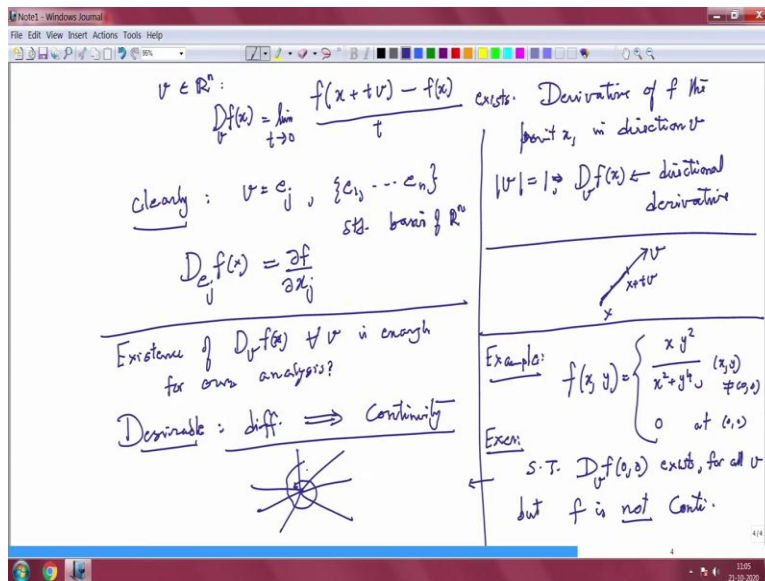 Note1 - Windows Journal
File Edit View Insert Actions Tools Help
96%
v ∈ ℝⁿ :
D_v f(x) = lim_{t→0} (f(x + tv) − f(x)) / t exists. Derivative of f the
point x, in direction v
Clearly : v = e_j , {e_1, ... e_n}
std. basis of ℝⁿ
D_{e_j} f(x) = ∂f/∂x_j
Existence of D_v f(x) ∀ v is enough
for our analysis?
Desirable : diff. ⟹ Continuity
|v| = 1, D_v f(x) ← directional
derivative
v
x+tv
x
Example: f(x, y) = { xy²/(x² + y⁴), (x, y) ≠ (0,0)
0 at (0,0)
Exer:
S.T. D_v f(0,0) exists, for all v
but f is not Conti.
4/4
4
11:05
21-10-2020